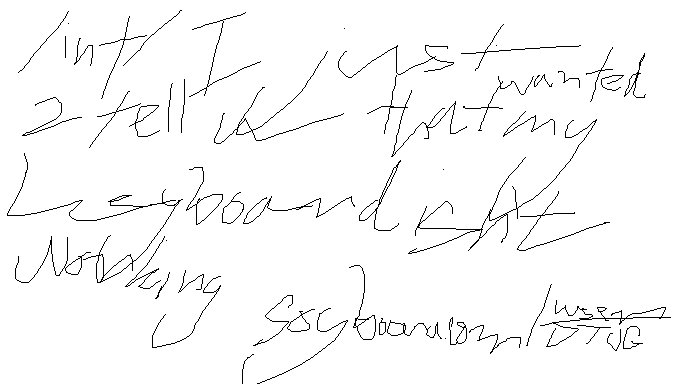 /int/ I just wanted
2 tell U that my
keyboard isnt
working
soyboard.org/